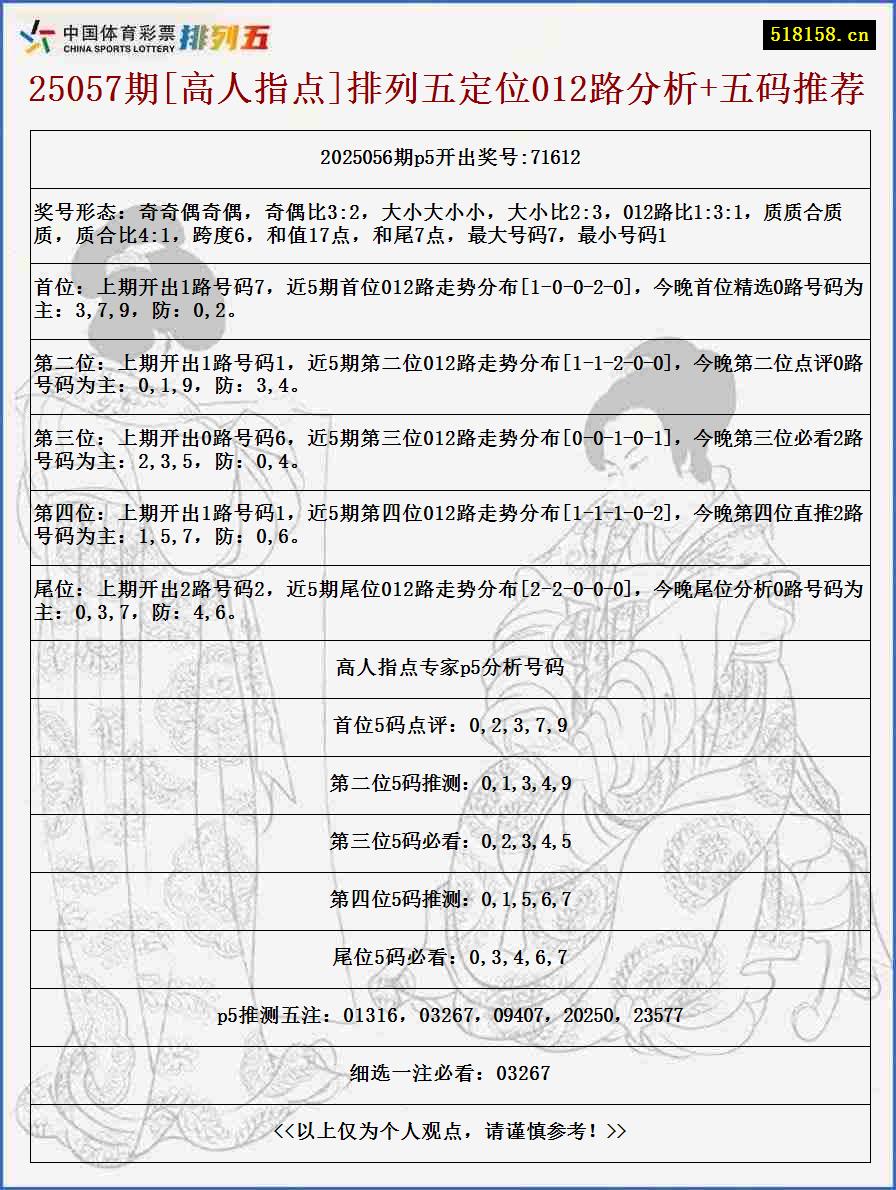 中国体育彩票
CHINA SPORTS LOTTERY
排列五
518158.cn
25057期[高人指点]排列五定位012路分析+五码推荐
2025056期p5开出奖号:71612
奖号形态：奇奇偶奇偶，奇偶比3:2，大小大小小，大小比2:3，012路比1:3:1，质质合质
质，质合比4:1，跨度6，和值17点，和尾7点，最大号码7，最小号码1
首位：上期开出1路号码7，近5期首位012路走势分布[1-0-0-2-0]，今晚首位精选0路号码为
主：3,7,9，防：0,2。
第二位：上期开出1路号码1，近5期第二位012路走势分布[1-1-2-0-0]，今晚第二位点评0路
号码为主：0,1,9，防：3,4。
第三位：上期开出0路号码6，近5期第三位012路走势分布[0-0-1-0-1]，今晚第三位必看2路
号码为主：2,3,5，防：0,4。
第四位：上期开出1路号码1，近5期第四位012路走势分布[1-1-1-0-2]，今晚第四位直推2路
号码为主：1,5,7，防：0,6。
尾位：上期开出2路号码2，近5期尾位012路走势分布[2-2-0-0-0]，今晚尾位分析0路号码为
主：0,3,7，防：4,6。
高人指点专家p5分析号码
首位5码点评：0,2,3,7,9
第二位5码推测：0,1,3,4,9
第三位5码必看：0,2,3,4,5
第四位5码推测：0,1,5,6,7
尾位5码必看：0,3,4,6,7
p5推测五注：01316，03267，09407，20250，23577
细选一注必看：03267
<<以上仅为个人观点，请谨慎参考！>>